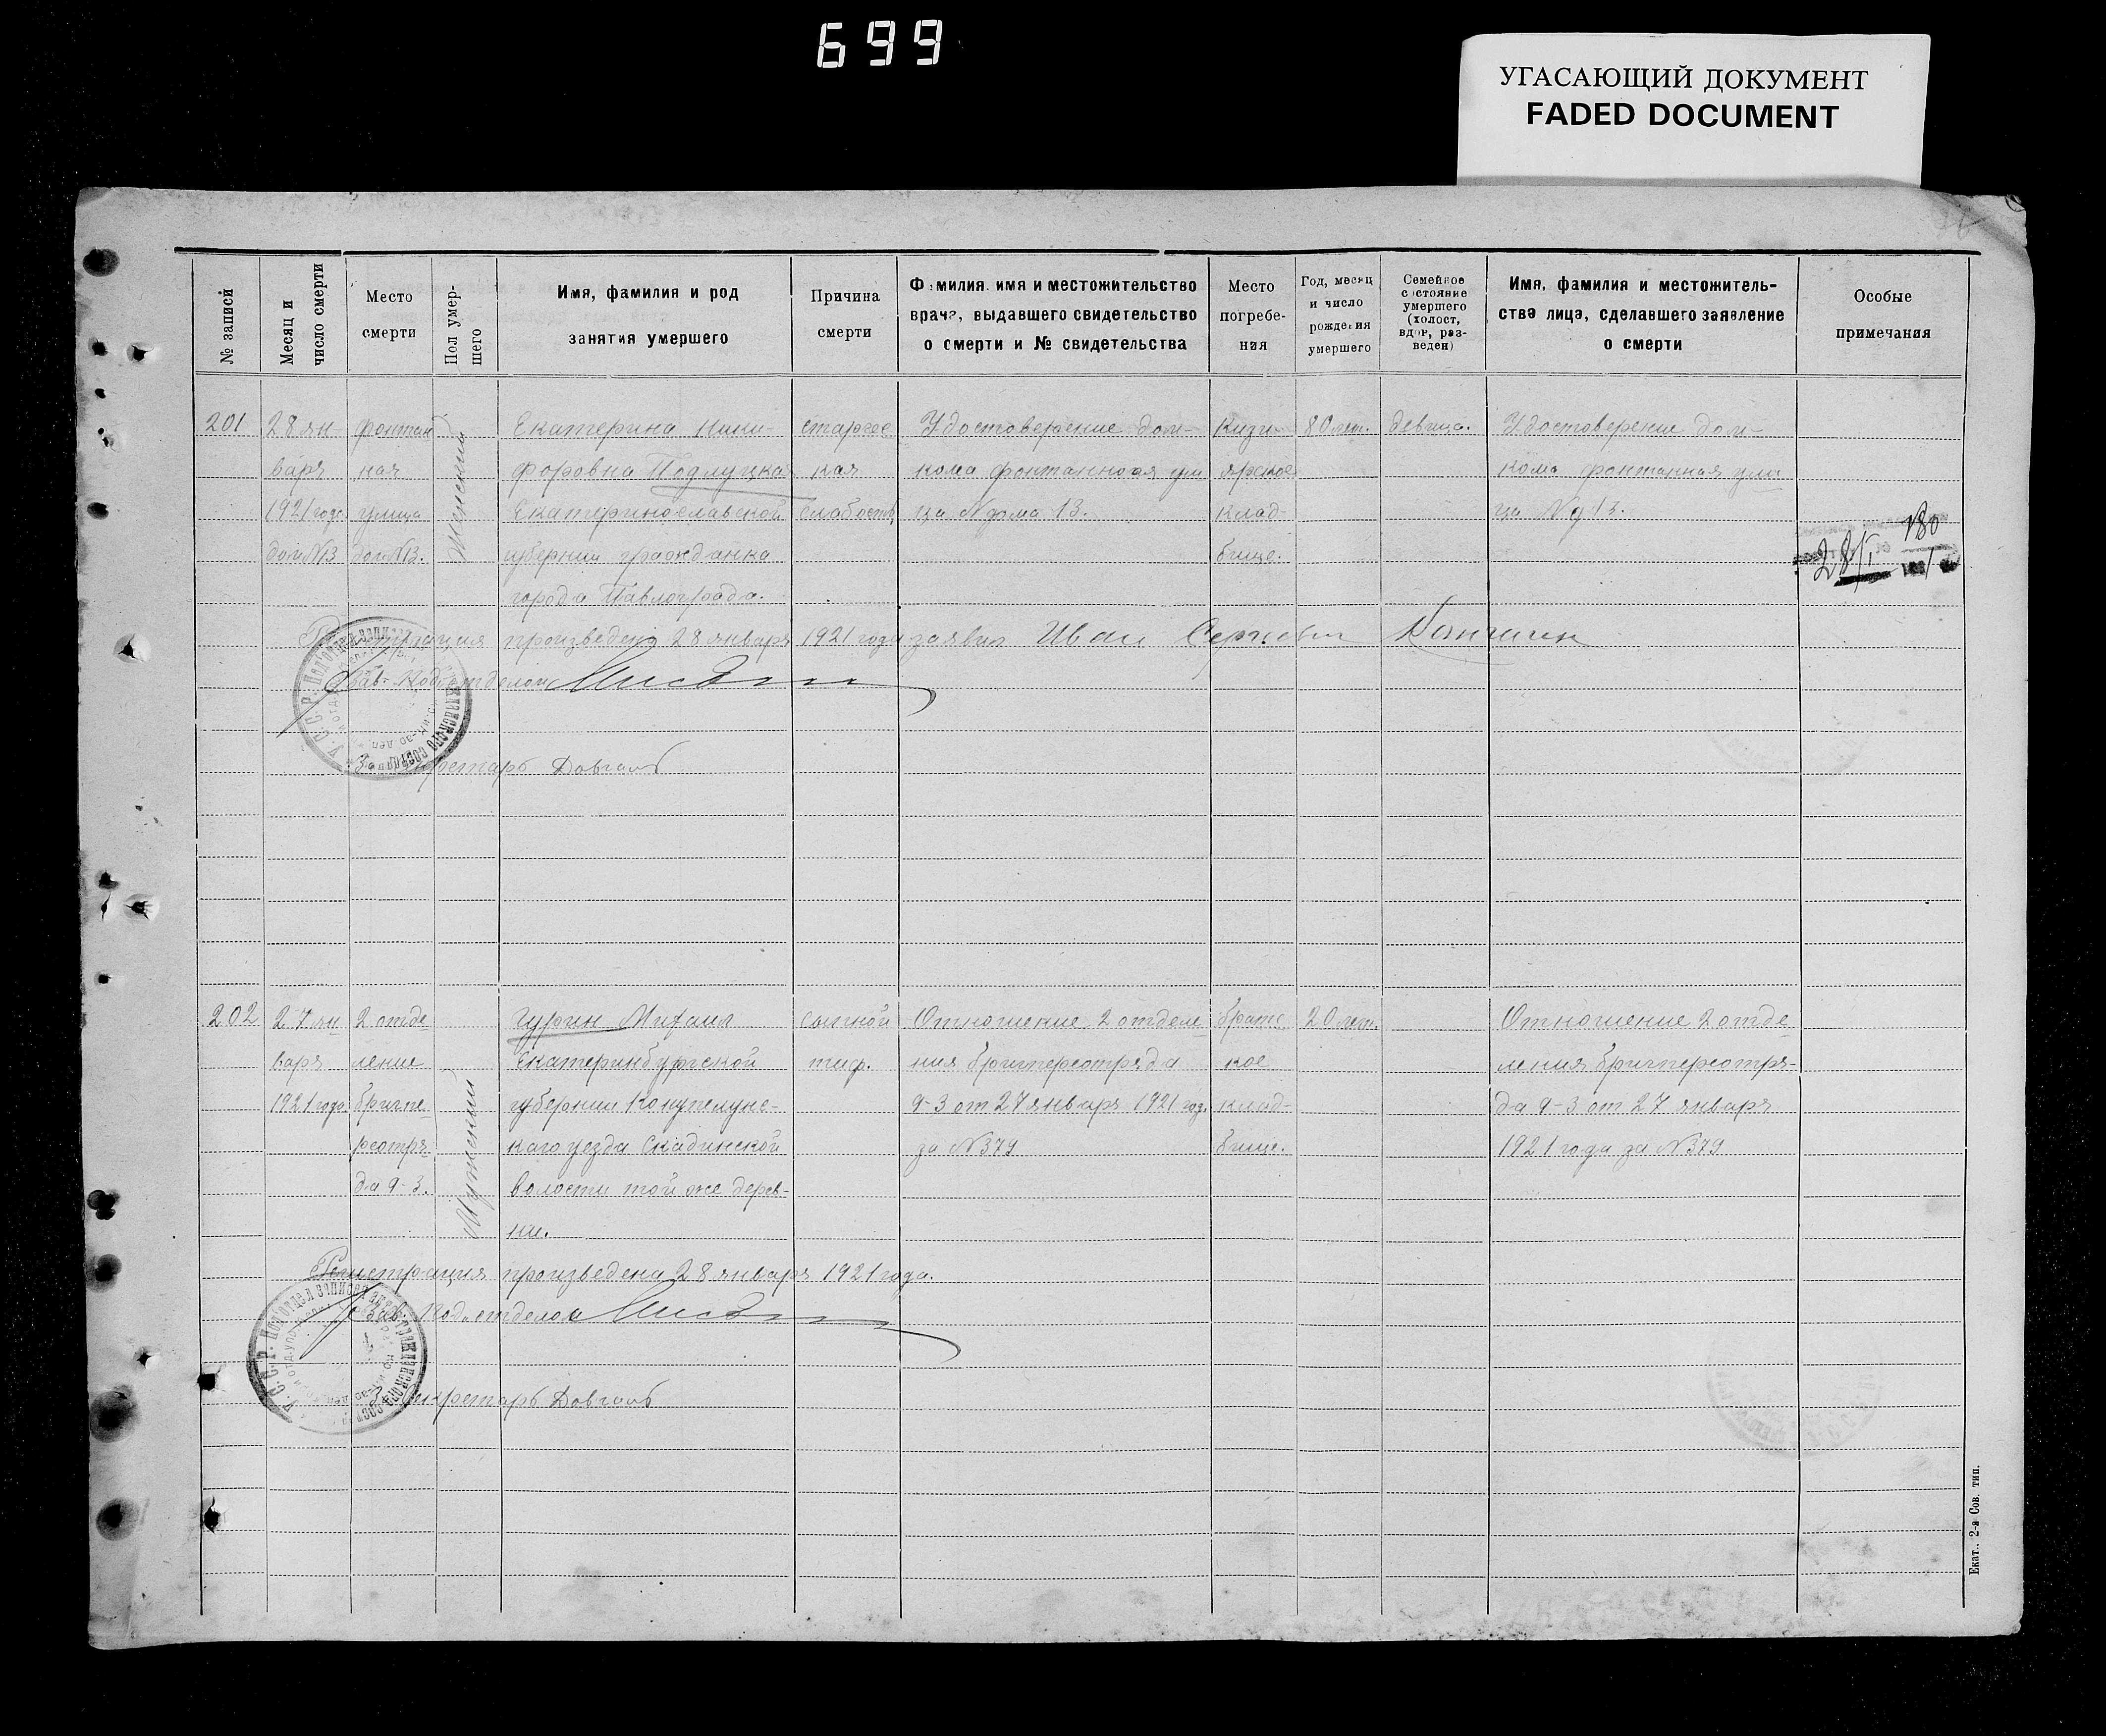 699
УГАСАЮЩИЙ ДОКУМЕНТ
FADED DOCUMENT
№ записи
Месяц и
число смерти
Место
смерти
Пол умер-
шего
Имя, фамилия и род
занятия умершего
Причина
смерти
Фамилия, имя и местожительство
врача, выдавшего свидетельство
о смерти и № свидетельства
Место
погребе-
ния
Год, месяц
и число
рождения
умершего
Семейное
состояние
умершего
(холост,
вдов, раз-
веден)
Имя, фамилия и местожитель-
ство лица, сделавшего заявление
о смерти
Особые
примечания
201
28 ян-
варя
1921 года
дом №13
фонтан
ная
улица
дом №13.
Женский
Екатерина Ники-
форовна Подлуцкая
Екатеринославской
губернии гражданка
города Павлограда.
старчес
кая
слабость
Удостоверение дом-
кома фонтанная ули
ца № дома 13.
клад-
бище.
80 лет.
девица.
Удостоверение дом-
кома фонтанная ули
ца № д 13.
28/I
Регистрация произведена 28 января 1921 года заявил Иван Сергеевич
Зав. Подотделом
Секретарь Довгаль
202
27 ян
варя
1921 года
2 отде
ление
бригпе
реотря-
да 9-3.
Мужской
Гургин Михаил
Екатеринбургской
губернии
каго уезда Скадинской
волости той же дерев-
ни.
сыпной
тиф.
Отношение 2 отделе
ния бригпереотряда
9-3 от 27 января 1921 год.
за №379
братс
кое
клад-
бище.
20 лет.
Отношение 2 отде
ления бригпереотря-
да 9-3 от 27 января
1921 года за №379
Регистрация произведена 28 января 1921 года.
Зав. Подотделом
Секретарь Довгаль
Екат., 2-я Сов. тип.